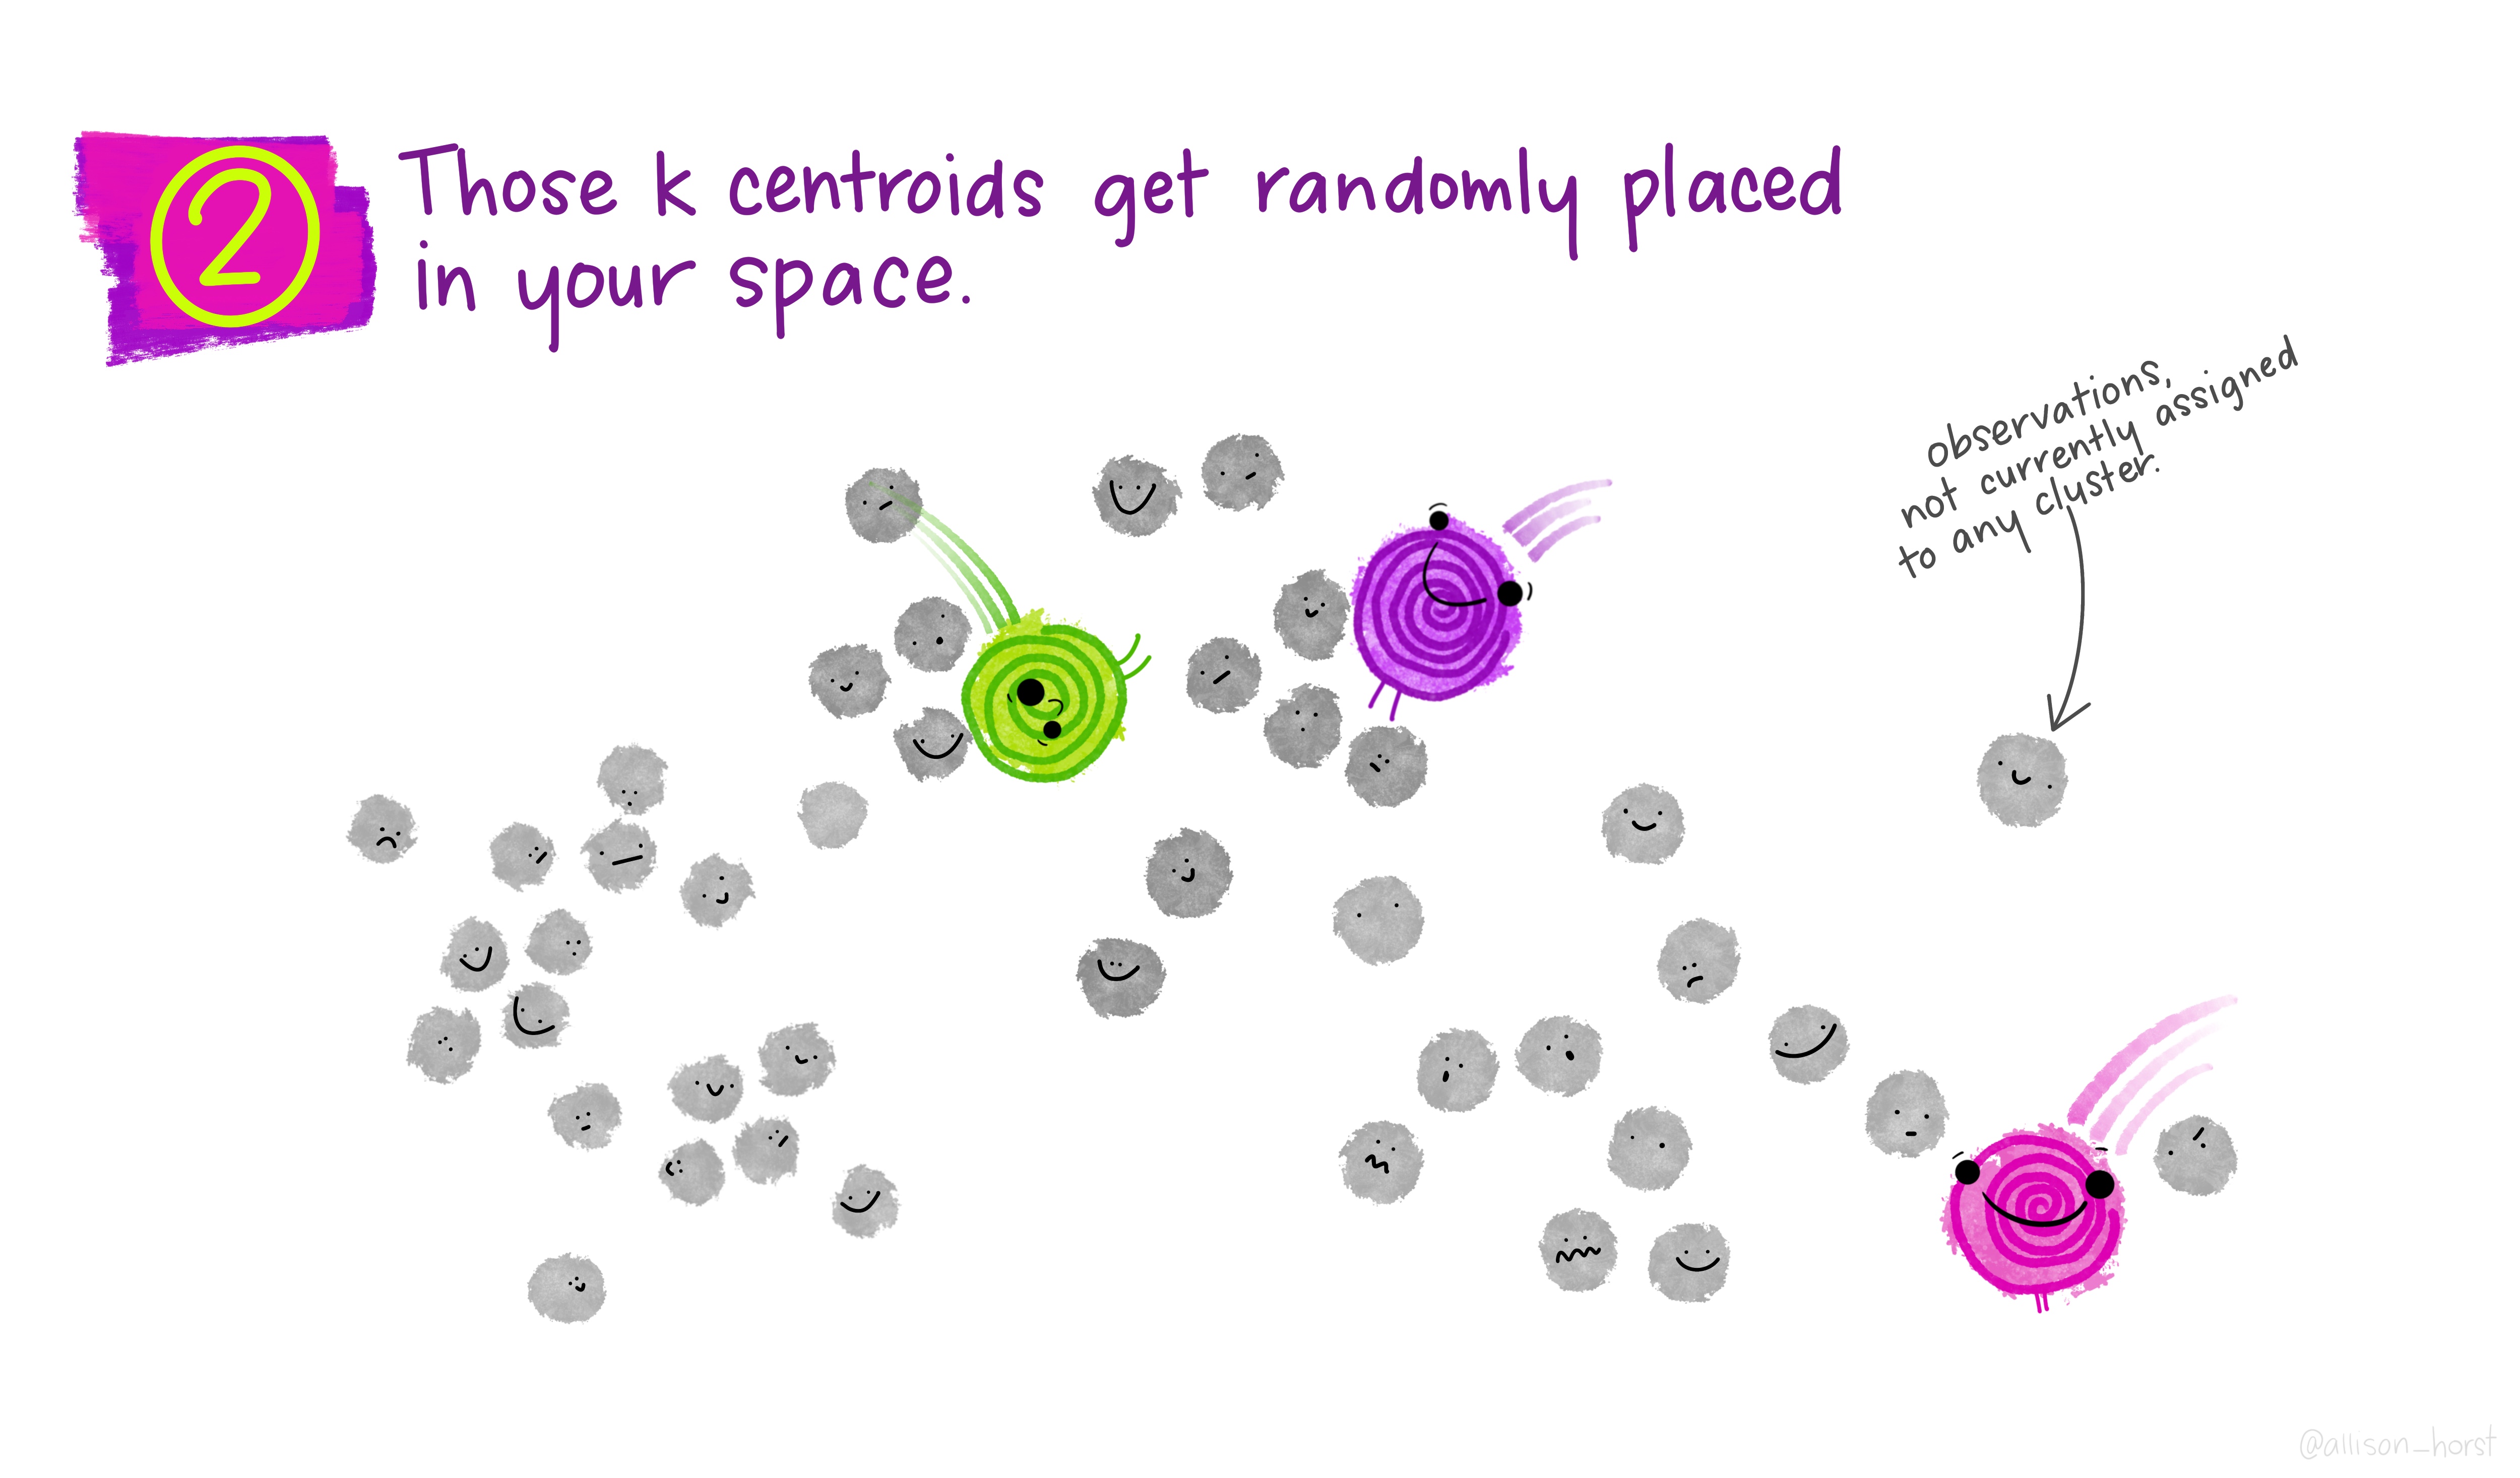 2
Those k centroids get randomly placed
in your space.
observations,
not currently assigned
to any cluster.
@allison_horst